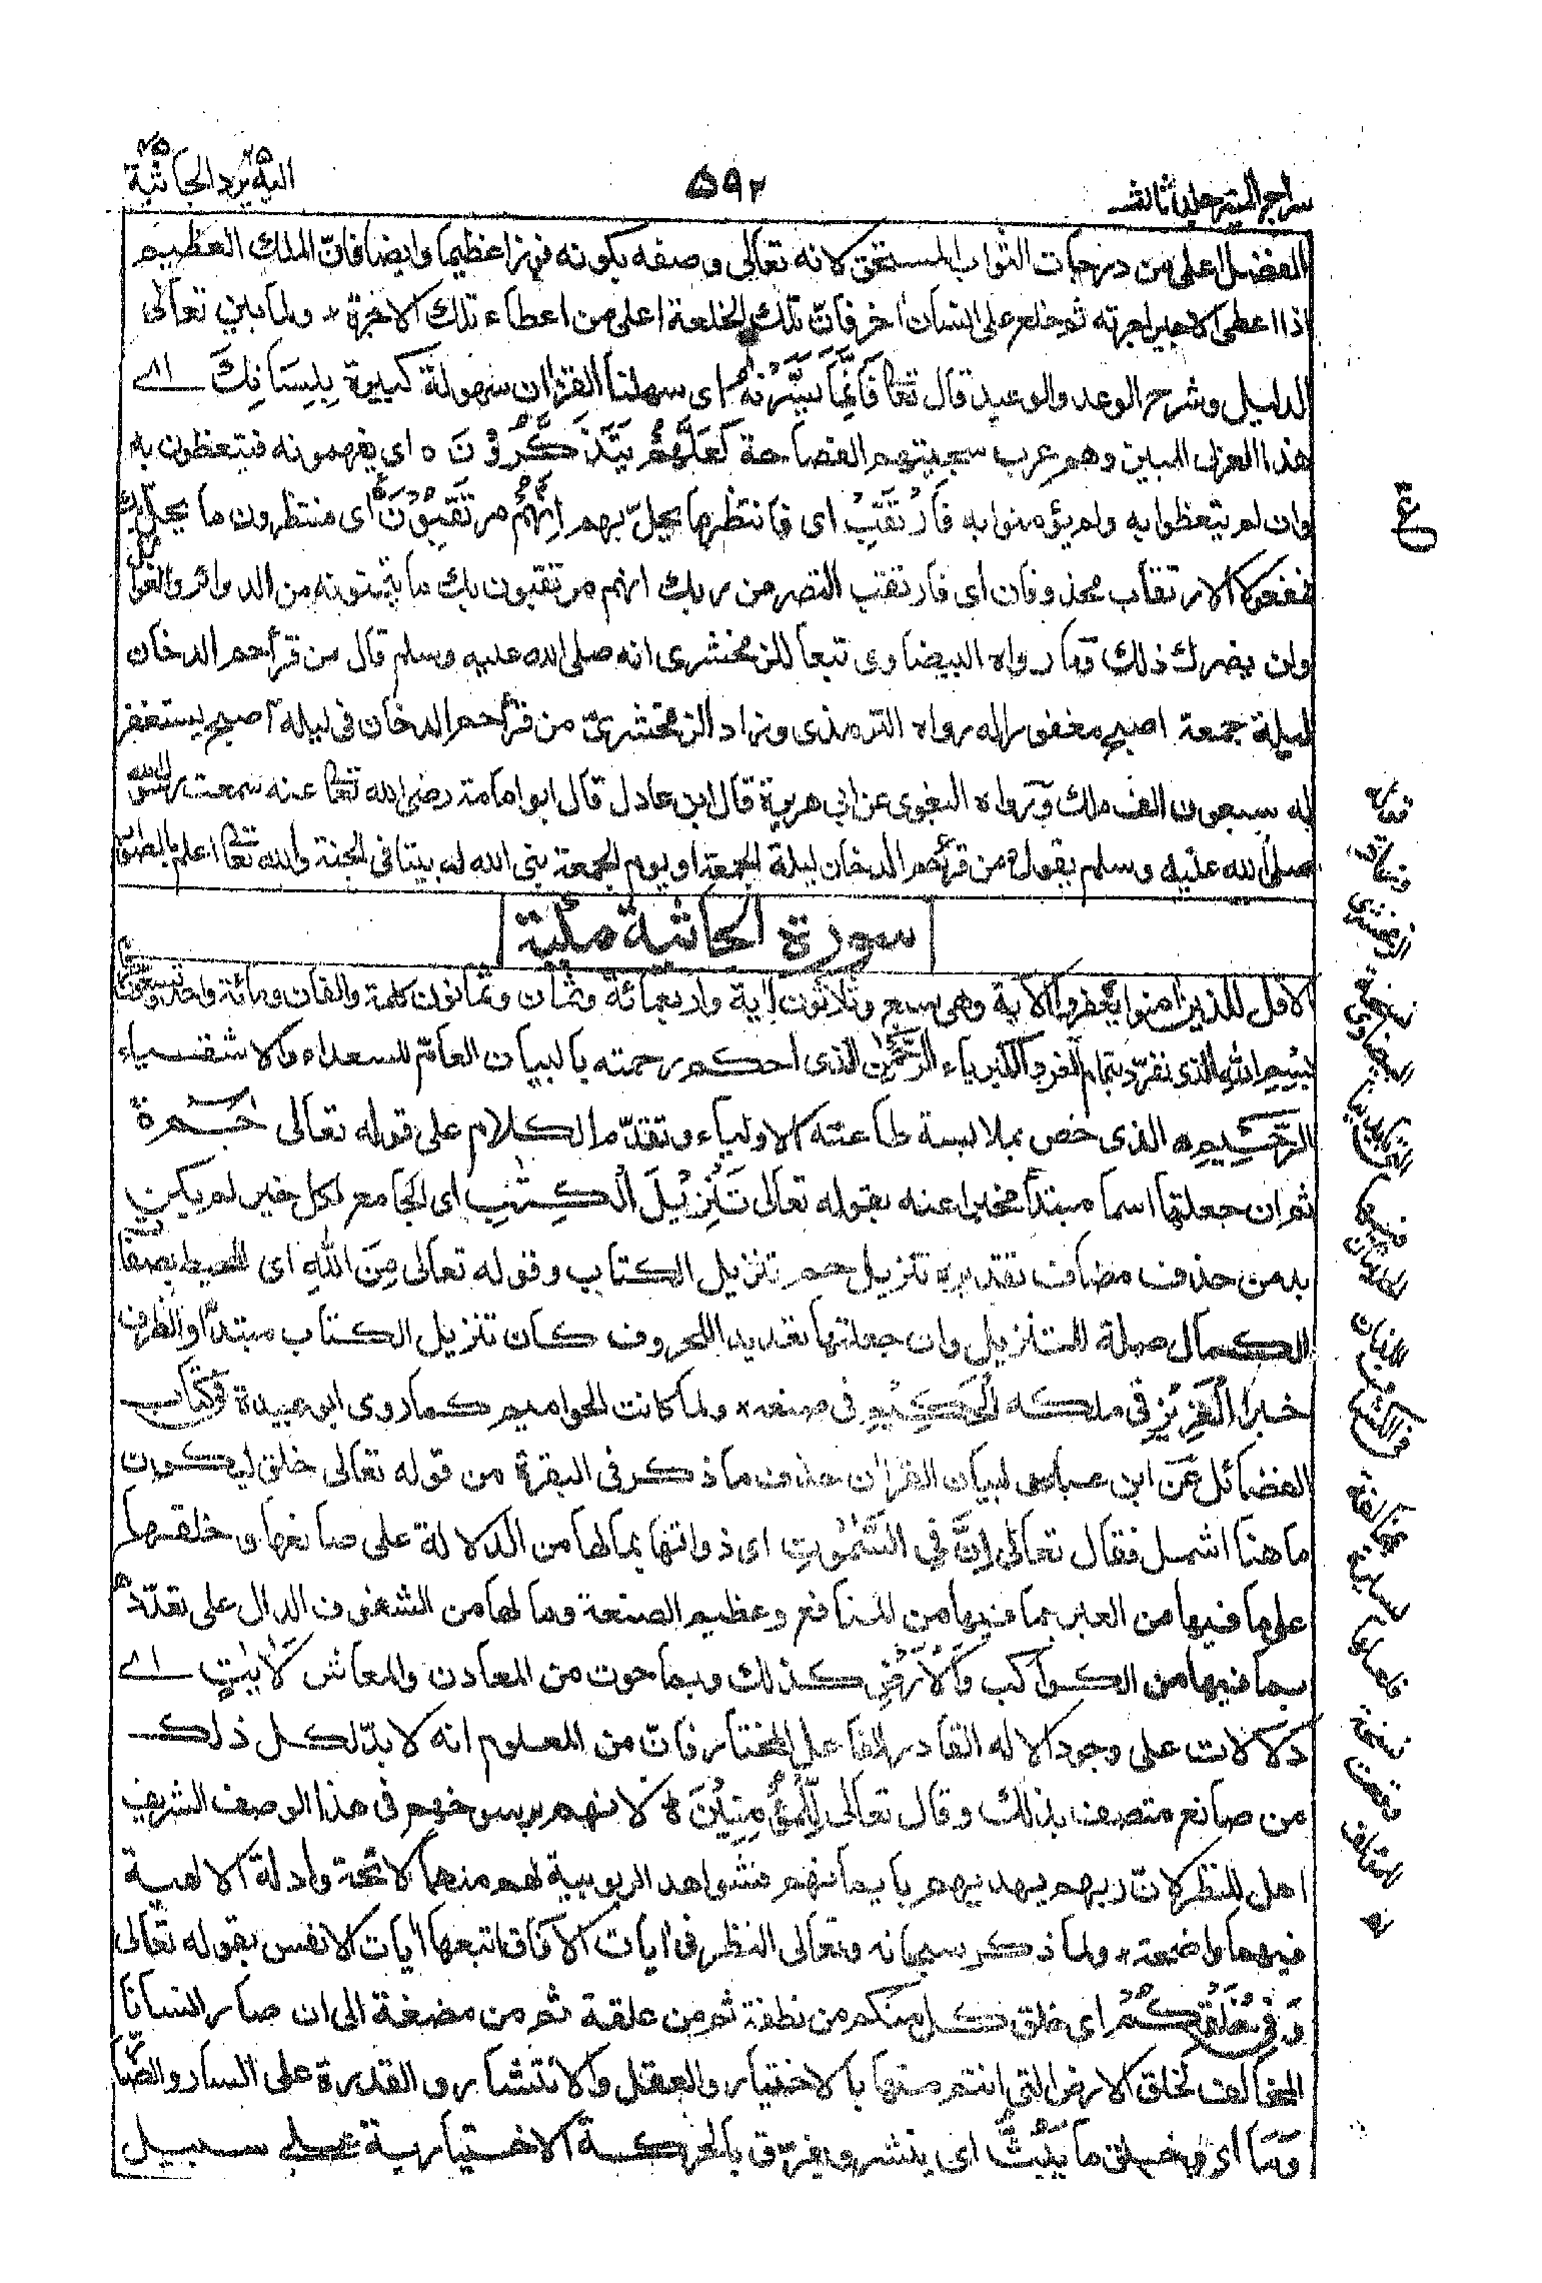 سراج المنير جلد ثالث
٥٩٢
اليه يرد ٢٥ الجاثية ٤٥
الفضل اعلى من درجات الثواب المستحق لانه تعالى وصفه بكونه فوزا عظيما وايضا فانّ الملك العظيم
اذا اعطى الاجير اجرته ثم خلع على انسان اٰخر فانّ تلك الخلعة اعلى من اعطاء تلك الاجرة * ولما بين تعالى
الدليل وشرح الوعد والوعيد قال تعا فَاِنَّمَا يَسَّرْنٰهُ اى سهلنا القرٰان سهولة كبيرة بِلِسَانِكَ اى
هذا العربى المبين وهم عرب سجيتهم الفصاحة لَعَلَّهُمْ يَتَذَكَّرُوْنَ ٥ اى يفهمونه فيتعظون به
وان لم يتعظوا به ولم يؤمنوا به فَارْتَقِبْ اى فانتظر ما يحلّ بهم اِنَّهُمْ مُّرْتَقِبُوْنَ اى منتظرون ما يحل بك
فمفعولا الارتقاب محذوفان اى فارتقب النصر من ربك انهم مرتقبون بك ما يتمنونه من الدوائر والغوائل
ولن يضرك ذلك وما رواه البيضاوى تبعا للزمخشرى انه صلى الله عليه وسلم قال من قرأ حم الدخان
ليلة جمعة اصبح مغفورا له رواه الترمذى وزاد الزمخشرىّ من قرأ حم الدخان فى ليلة اصبح يستغفر
له سبعون الف ملك ورواه البغوى عن ابى هريرة قال ابن عادل قال ابو امامة رضى الله تعا عنه سمعت رسول الله
صلى الله عليه وسلم يقول من قرأ حم الدخان ليلة الجمعة او يوم الجمعة بنى الله له بيتا فى الجنة والله تعا اعلم بالصواب
سورة الجاثية مكية
الا قل للذين اٰمنوا يغفروا الاٰية وهى سبع وثلاثون اٰية واربعمائة وثمان وثمانون كلمة والفان ومائة واحد وتسعون
بِسْمِ اللهِ الذى تفرّد بتمام العز والكبرياء الرَّحْمٰنِ الذى احكم رحمته بالبيان العامّ للسعداء والاشقياء
الرَّحِيْمِ ه الذى خص بملابسة طاعته الاولياء وتقدّم الكلام على قوله تعالى حٰمٓ ة
ثم ان جعلتها اسما مبتدأ مخبرا عنه بقوله تعالى تَنْزِيْلُ الْكِتٰبِ اى الجامع لكل خير لم يكن
بد من حذف مضاف تقديره تنزيل حم تنزيل الكتاب وقوله تعالى مِنَ اللهِ اى المحيط بصفات
الكمال صلة للتنزيل وان جعلتها تعديد اللحروف كان تنزيل الكتاب مبتدأ والظرف
خبرا الْعَزِيْزِ فى ملكه الْحَكِيْمِ فى صنعه * ولما كانت الحواميم كما روى ابو عبيدة فى كتاب
الفضائل عن ابن عباس لباب القرٰان حذف ما ذكر فى البقرة من قوله تعالى خلق ليكون
ما هنا اشمل فقال تعالى اِنَّ فِى السَّمٰوٰتِ اى ذواتها بما لها من الدلالة على صانعها وخلقها
على ما فيها من العبر بما فيها من المنافع وعظيم الصنعة وما لها من الشفوف الدال على تعدّدها
بما فيها من الكواكب وَالْاَرْضِ كذلك وبما حوت من المعادن والمعاش لَاٰيٰتٍ اى
دلالات على وجود الاله القادر الفاعل المختار فانّ من المعلوم انه لا بدّ لكل ذلك
من صانع متصف بذلك وقال تعالى لِّلْمُؤْمِنِيْنَ ۃ لانهم برسوخهم فى هذا الوصف الشريف
اهل للنظر لانّ ربهم يهديهم بايمانهم فشواهد الربوبية لهم منهما لائحة وادلة الالهية
فيهما واضحة * ولما ذكر سبحانه وتعالى النظر فى اٰيات الاٰفاق اتبعها اٰيات الانفس بقوله تعالى
وَفِىْ خَلْقِكُمْ اى خلق كل منكم من نطفة ثم من علقة ثم من مضغة الى ان صار انسانا
المخالف لخلق الارض التى انتم منها بالاختيار والعقل والانتشار والقدرة على السار والضار
وَمَا اى وفى خلق ما يَبُثُّ اى ينشر ويفرّق بالحركة الاختيارية على سبيل